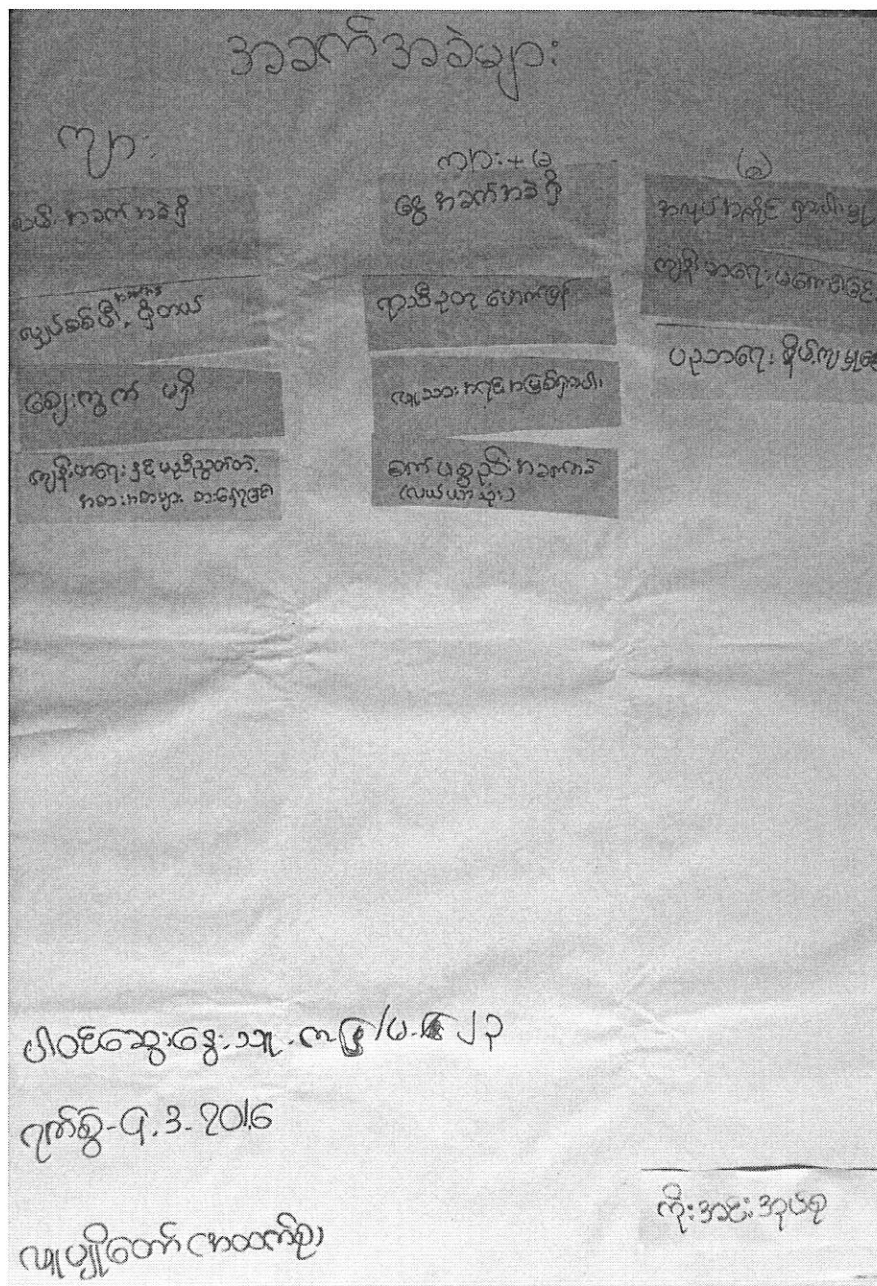 အခက်အခဲများ
ကျား
မီး အခက်အခဲရှိ
လျှပ်စစ်မီး ရှိတယ်
ဈေးကွက် မရှိ
ကျန်းမာရေးနှင့် မညီညွတ်တဲ့
အစားအစာများ စားနေရခြင်း
ကျား + မ
ငွေ အခက်အခဲရှိ
ရာသီဥတု ဖောက်ပြန်
လူသားအရင်းအမြစ်ရှားပါး
စက်ပစ္စည်းအခက်အခဲ
(လယ်ယာသုံး)
(မ)
အလုပ်အကိုင် ရှားပါးမှု
ကျန်းမာရေး မကောင်းခြင်း
ပညာရေး နိမ့်ကျမှု
ပါဝင်ဆွေးနွေးသူ - ကျား /မ- ၂၃
ရက်စွဲ - ၄.3.2016
လူပျိုတော် (အထက်စု)
ကိုးအင်းအုပ်စု